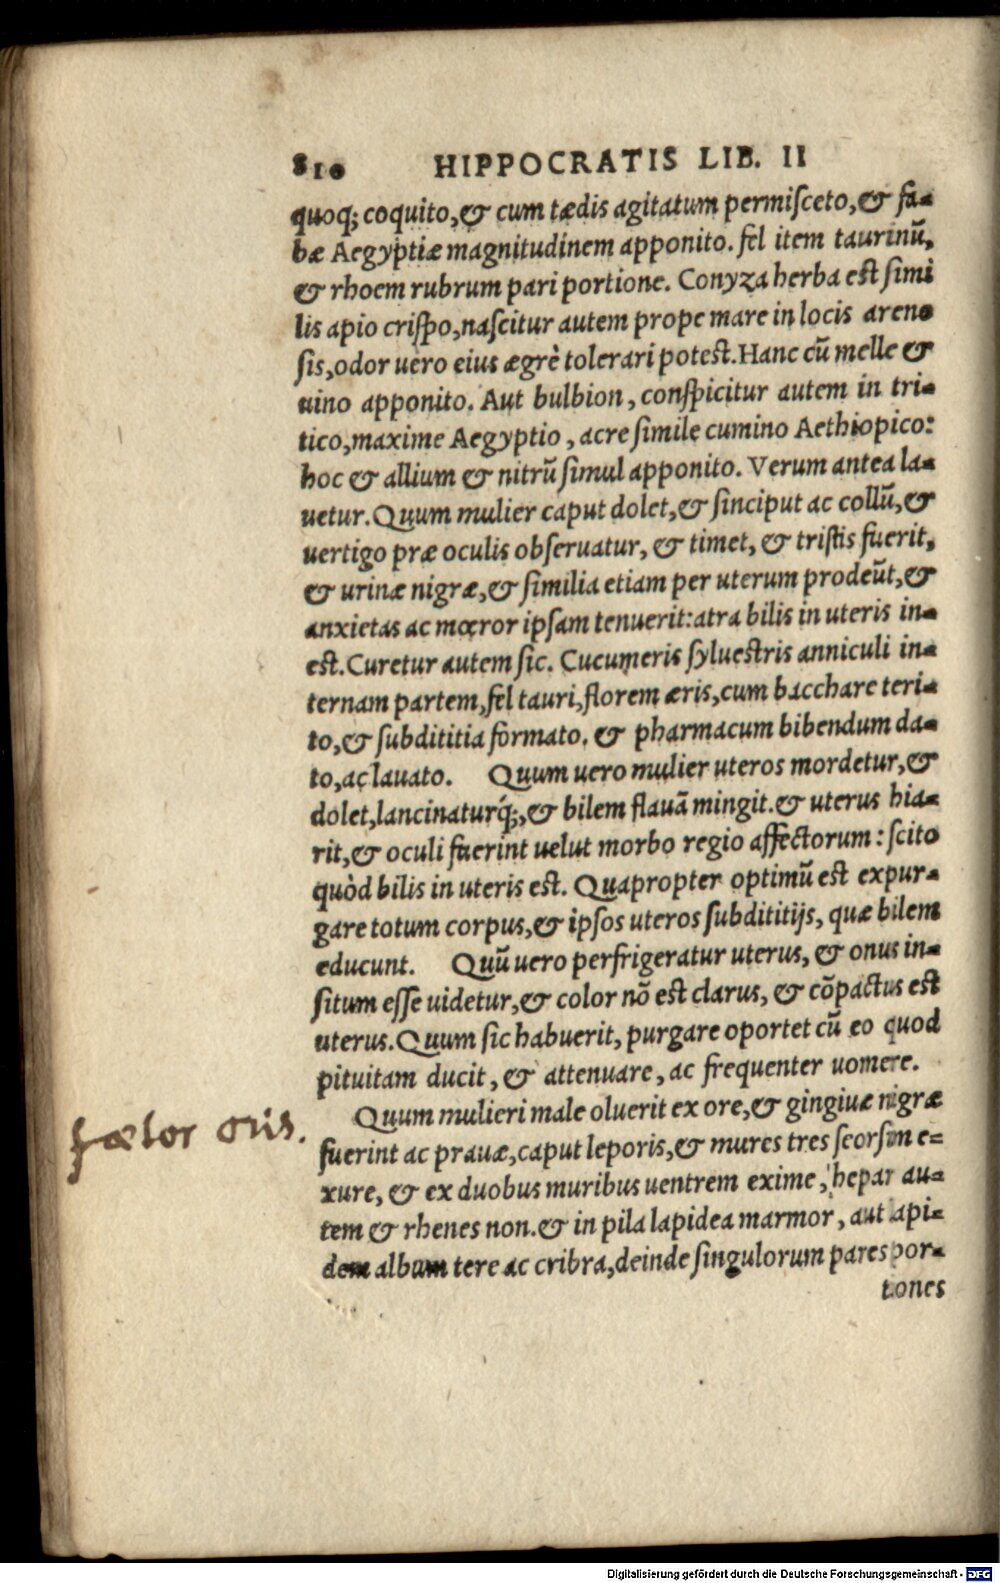 810 HIPPOCRATIS LIB. II
quoq; coquito, & cum tædis agitatum permisceto, & fa-
bæ Aegyptiæ magnitudinem apponito. fel item taurinũ,
& rhoem rubrum pari portione. Conyza herba est simi
lis apio crispo, nascitur autem prope mare in locis areno
sis, odor uero eius ægrè tolerari potest. Hanc cũ melle &
uino apponito. Aut bulbion, conspicitur autem in tri-
tico, maxime Aegyptio, acre simile cumino Aethiopico:
hoc & allium & nitrũ simul apponito. Verum antea la-
uetur. Quum mulier caput dolet, & sinciput ac collũ, &
uertigo præ oculis obseruatur, & timet, & tristis fuerit,
& urinæ nigræ, & similia etiam per uterum prodeũt, &
anxietas ac mœror ipsam tenuerit: atra bilis in uteris in-
est. Curetur autem sic. Cucumeris syluestris anniculi in-
ternam partem, fel tauri, florem æris, cum bacchare teri-
to, & subdititia formato. & pharmacum bibendum da-
to, ac lauato. Quum uero mulier uteros mordetur, &
dolet, lancinaturq́;, & bilem flauã mingit. & uterus hia-
rit, & oculi fuerint uelut morbo regio affectorum: scito
quòd bilis in uteris est. Quapropter optimũ est expur-
gare totum corpus, & ipsos uteros subdititijs, quæ bilem
educunt. Quũ uero perfrigeratur uterus, & onus in-
situm esse uidetur, & color nõ est clarus, & cõpactus est
uterus. Quum sic habuerit, purgare oportet cũ eo quod
pituitam ducit, & attenuare, ac frequenter uomere.
Quum mulieri male oluerit ex ore, & gingiuæ nigræ
fuerint ac prauæ, caput leporis, & mures tres seorsim e-
xure, & ex duobus muribus uentrem exime, hepar au-
tem & rhenes non. & in pila lapidea marmor, aut lapi-
dem album tere ac cribra, deinde singulorum pares por-
tiones
fœtor oris.
Digitalisierung gefördert durch die Deutsche Forschungsgemeinschaft - DFG